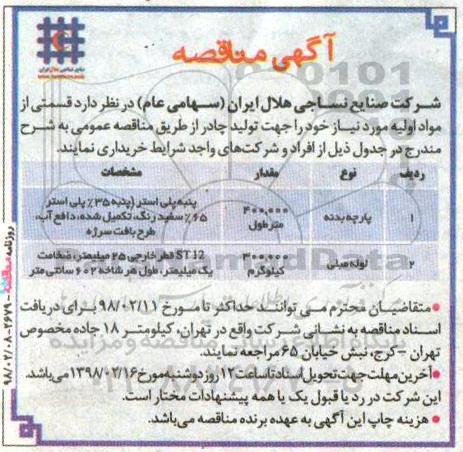 آگهی مناقصه
شرکت صنایع نساجی هلال ایران (سهامی عام) در نظر دارد قسمتی از
مواد اولیه مورد نیاز خود را جهت تولید چادر از طریق مناقصه عمومی به شرح
مندرج در جدول ذیل از افراد و شرکت‌های واجد شرایط خریداری نمایند.
ردیف نوع مقدار مشخصات
۱ پارچه بدنه ۴۰۰,۰۰۰ متر طول پنبه پلی استر (پنبه ۳۵٪ پلی استر
۶۵٪ سفید رنگ، تکمیل شده، دافع آب،
طرح بافت سرژه
۲ لوله مبلی ۳۰۰,۰۰۰ کیلوگرم ST12 قطر خارجی ۲۵ میلیمتر، ضخامت
یک میلیمتر، طول هر شاخه ۶۰۲ سانتی متر
● متقاضیان محترم می توانند حداکثر تا مورخ ۹۸/۰۲/۱۱ برای دریافت
اسناد مناقصه به نشانی شرکت واقع در تهران، کیلومتر ۱۸ جاده مخصوص
تهران – کرج، نبش خیابان ۶۵ مراجعه نمایند.
● آخرین مهلت جهت تحویل اسناد تا ساعت ۱۲ روز دوشنبه مورخ ۱۳۹۸/۰۲/۱۶ می‌باشد.
این شرکت در رد یا قبول یک یا همه پیشنهادات مختار است.
● هزینه چاپ این آگهی به عهده برنده مناقصه می‌باشد.
روزنامه مناقصه - ۲۶۷۹ - ۹۸/۰۲/۰۸